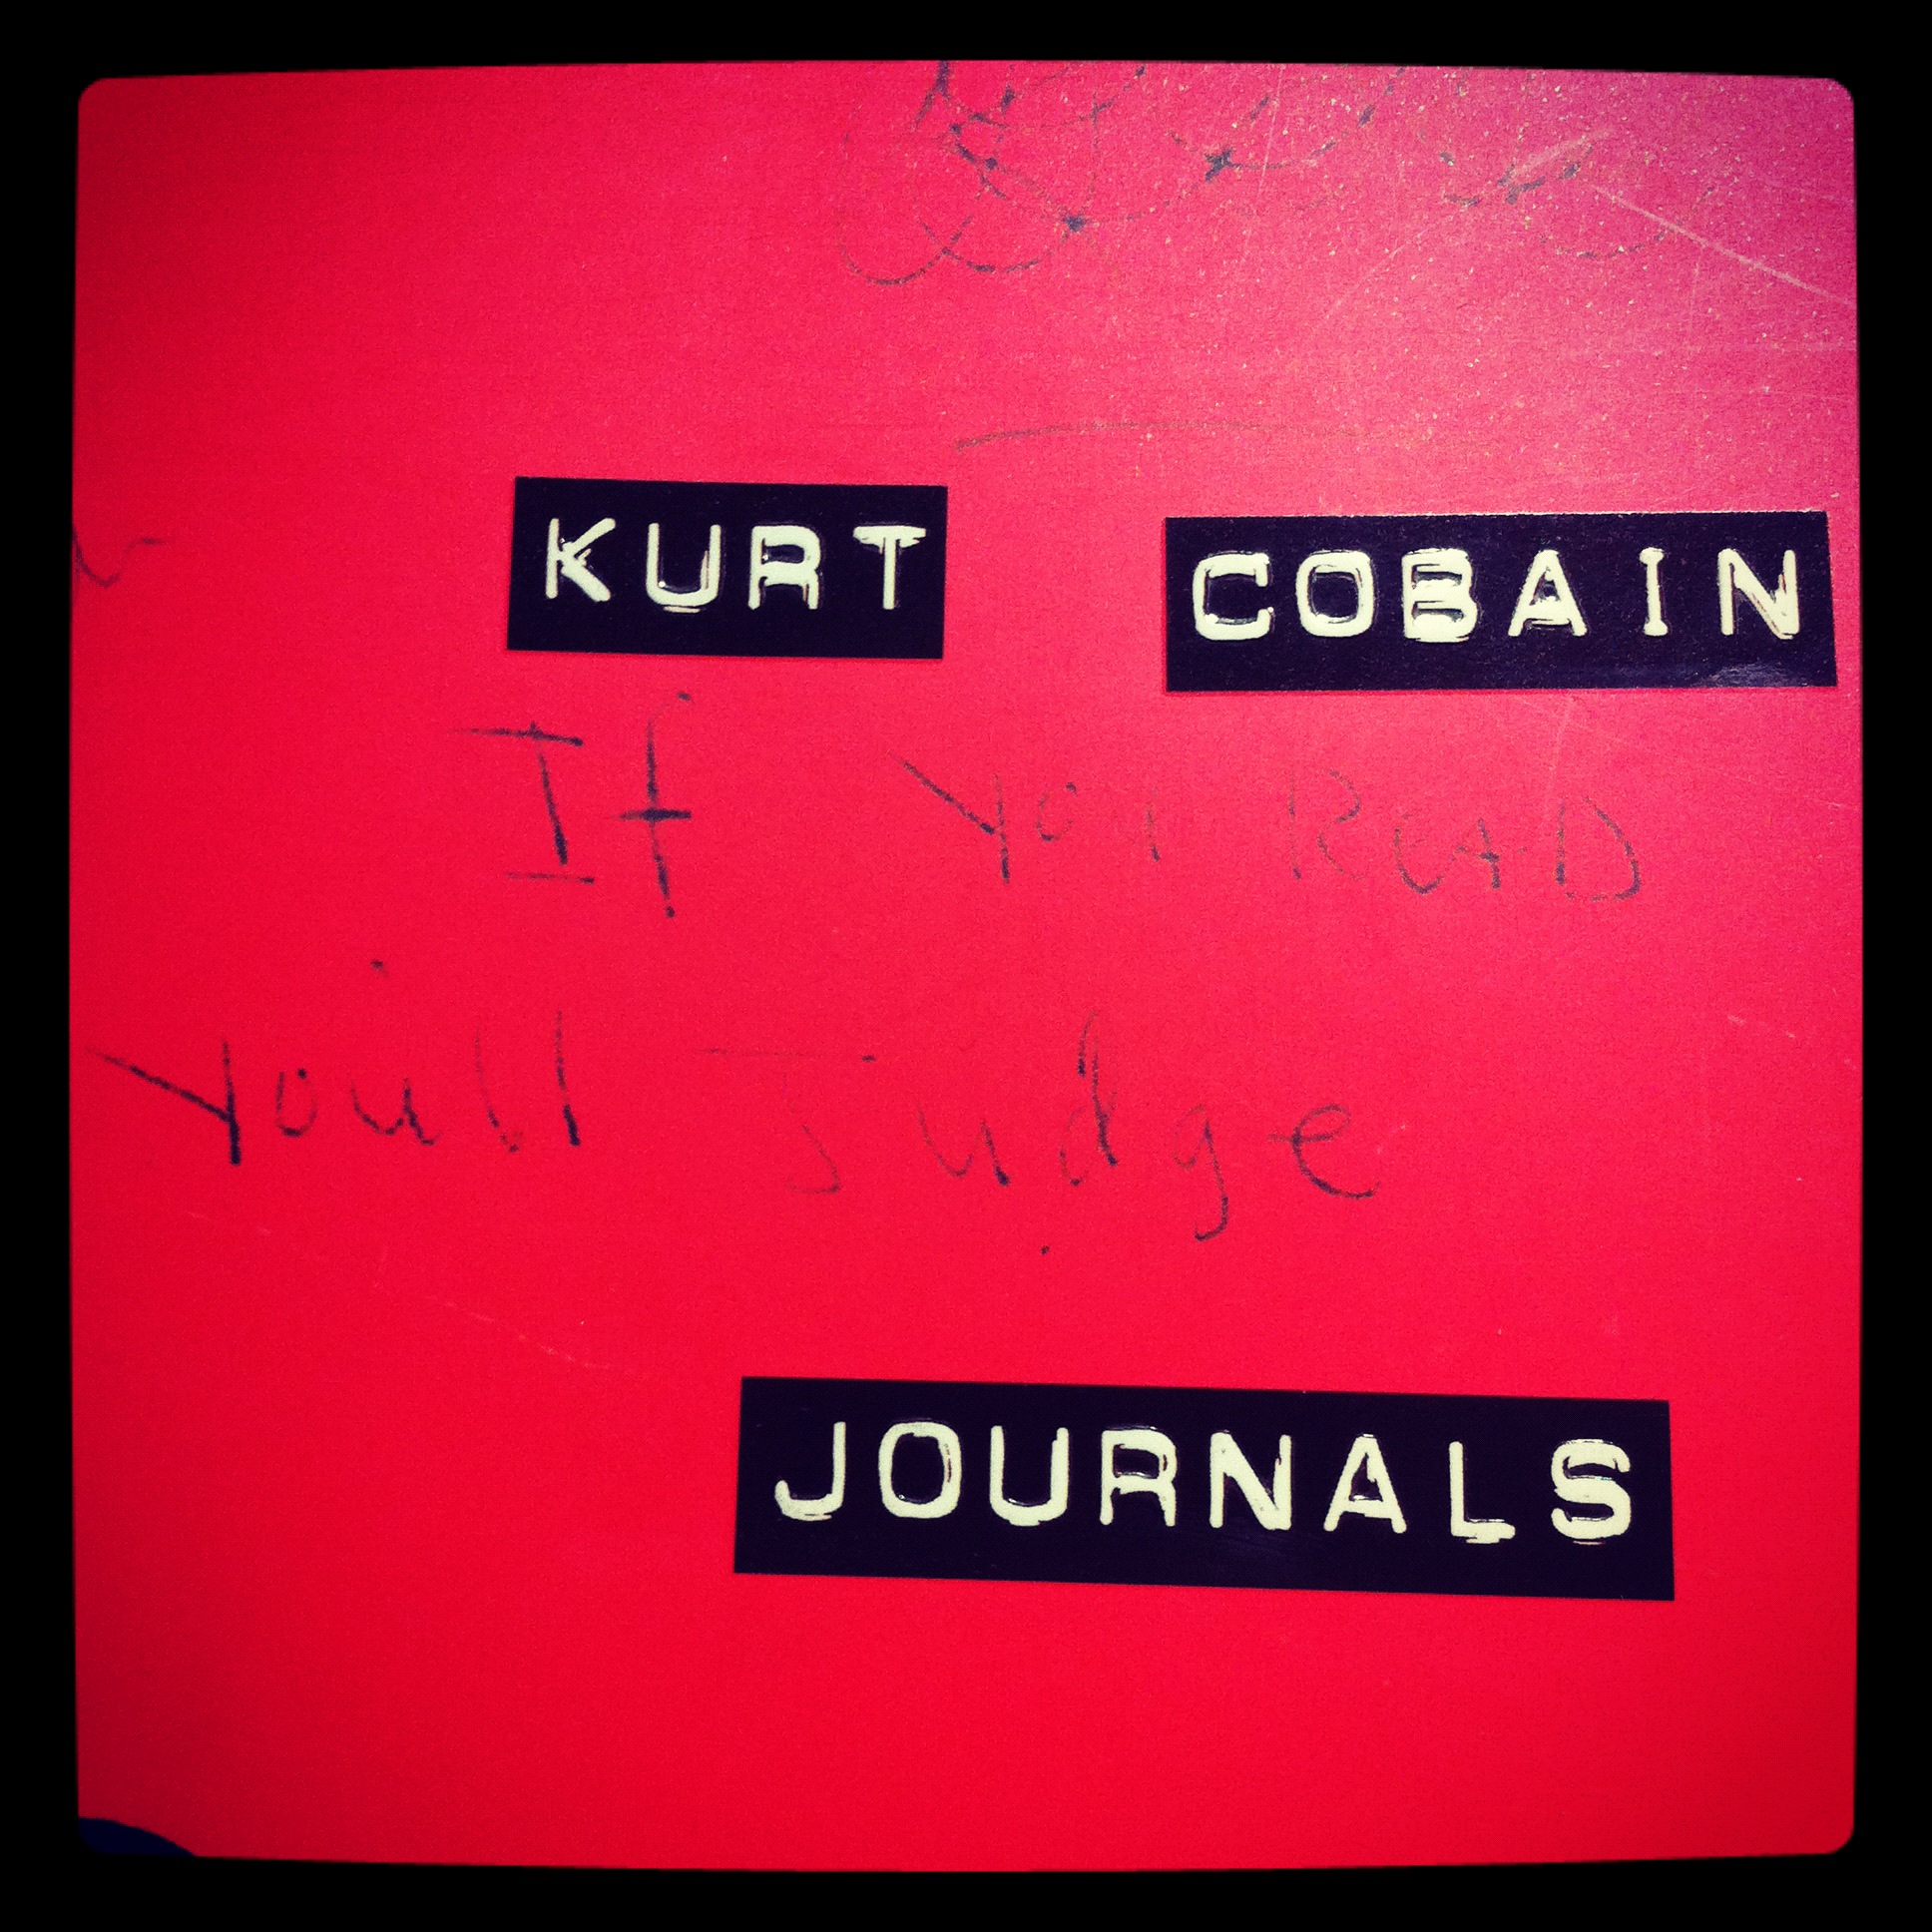 KURT COBAIN
If You READ
You'll Judge
JOURNALS